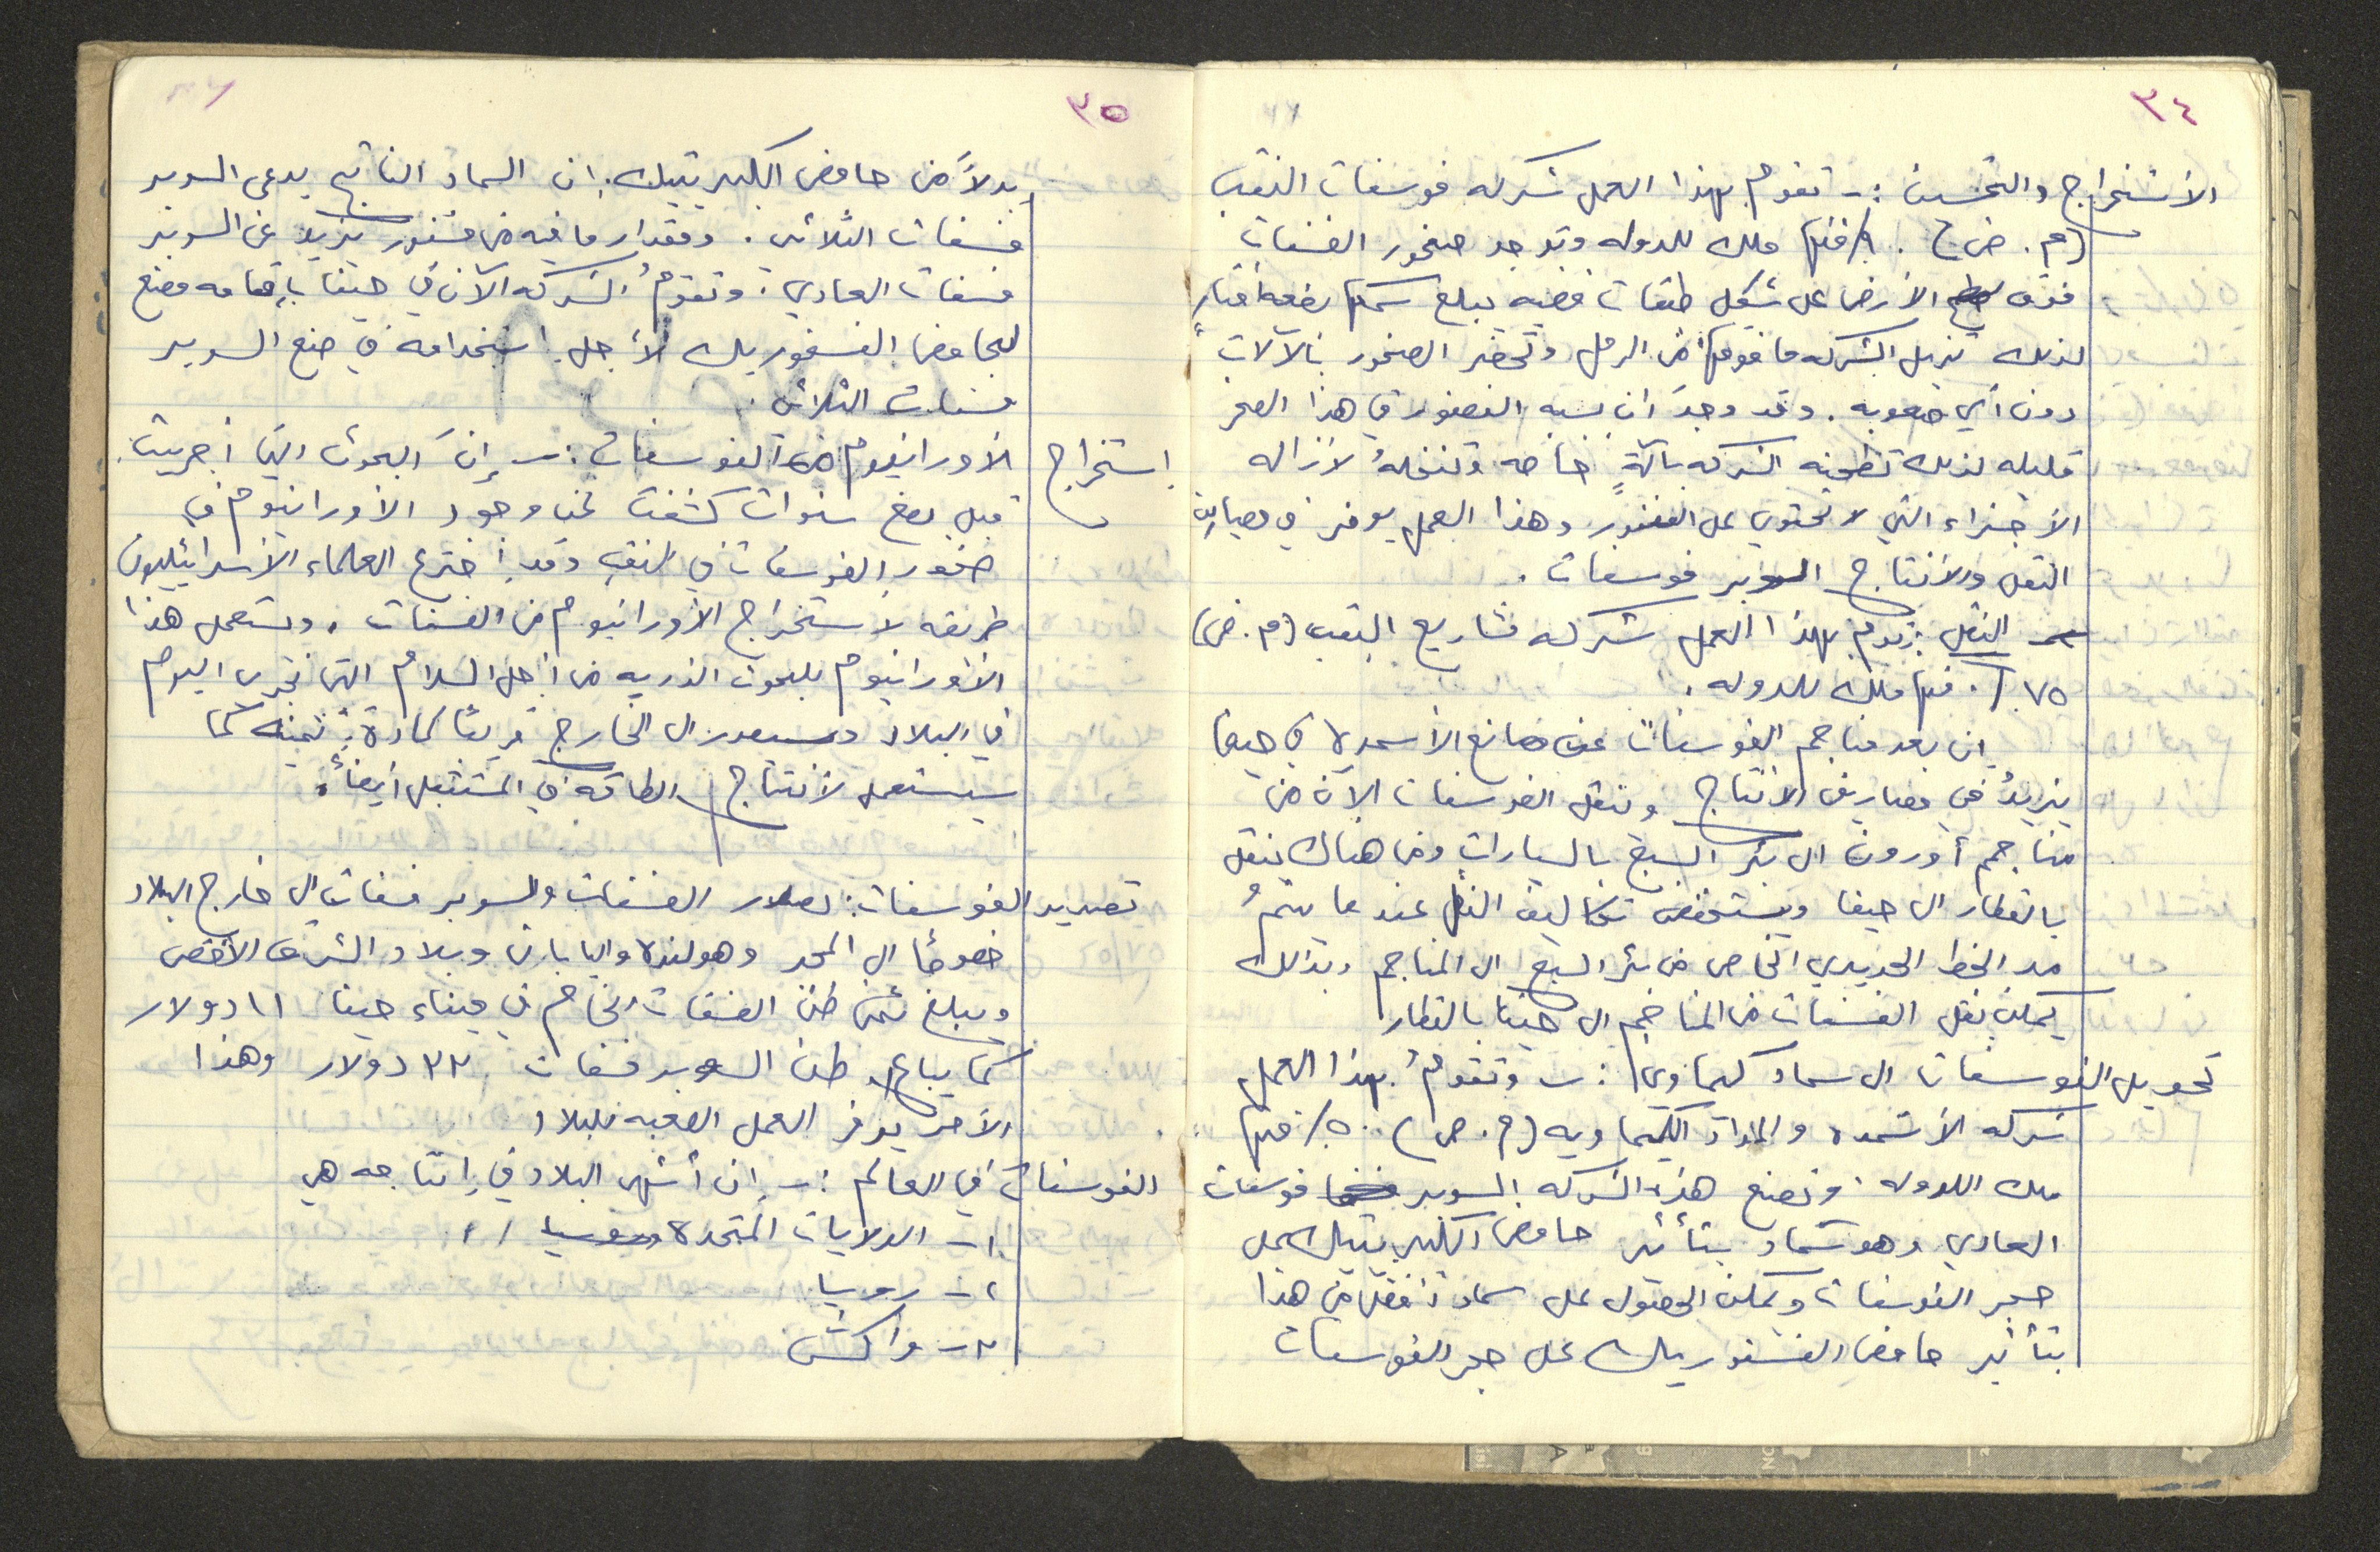 ٣٤
الأستخراج والتحسين :- تقوم بهذا العمل شركه فوسفات النقب
(م. ض) . % منها ملك للدوله وتوجد صخور الفسفات
فوق سطح الأرض على شكل طبقات يبلغ سمكها بضعة امتار
لذلك تزيل الشركه ما فوقها من الرمل وتحضر الصخور بالآلات
دون أي صعوبه. وقد وجد ان نسبه الفصفور في هذا الصخر
قليله لذلك تطحنه الشركه بآلةٍ خاصه وتنخلهُ لازاله
الأجزاء التي لا تحتوي على الفسفور وهذا العمل يوفر في مصاريف
النقل والأنتاج السوبر فوسفات .
النقل : تقوم بهذا العمل شركه مشاريع النقب (م. ض)
٧٥% منها ملك للدوله .
ان بعد مناجم الفوسفات عن مصانع الأسمدة في حيفا
يزيدُ في مصاريف الأنتاج وتنقل الفوسفات الآن من
مناجم أورون الى بئر السبع بالسيارات ومن هناك ينقل
بالقطار الى حيفا وستنخفض تكاليف النقل عند ما يتمُ
مد الخط الحديدي الخاص من بئر السبع الى المناجم وبذالك
يمكن نقل الفسفات من المناجم الى حيفا بالقطار
تحويل الفوسفات الى سماد كيماوي :- وتقومُ بهذا العمل
شركه الأسمده والمواد الكيماويه (م. ض) ٥٠% منها
ملك للدوله . وتصنع هذه الشركه السوبر فوسفات
العادي وهو سماد بتأثير حامض الكبريتيك على
حجر الفوسفات ويمكن الحصول على سماد أفضل من هذا
بتأثير حامض الفسفوريك على حجر الفوسفات
٣٥
بدلاً من حامض الكبريتيك. ان السماد الناتج يدعى السوبر
فسفات الثلاثي . ومقدار ما فيه من فسفور يزيد عن السوبر
فسفات العادي . وتقومُ الشركه الآن في حيفا بإقامه مصنع
لحامض الفسفوريك لأجل استخدامه في صنع السوبر
فسفات الثلاثي .
استخراج الأورانيوم من الفوسفات :- إن البحوث التي أجريت
قبل بضع سنوات كشفت عن وجود الأورانيوم في
صخور الفوسفات في النقب وقد أخترع العلماء الأسرائيليون
طريقه لاستخراج الأورانيوم من الفسفات . ويستعمل هذا
الأورانيوم للبحوث الذريه من أجل السلام التي تجرى اليوم
في البلاد وسيصدر الى الخارج قريبًا كمادةٍ ثمينه كما
سيستعمل لأنتاج الطاقه في المستقبل أيضًا.
تصدير الفوسفات : تصدر الفسفات والسوبر فسفات الى خارج البلاد
خصوصًا الى المجر وهولنده واليابان وبلاد الشرق الأقصى
ويبلغ ثمن طن الفسفات الخام في ميناء حيفا ١١ دولار
كما يباع طن السوبر فسفات ٢٣ دولار وهذا
الأمر يوفر العمل الصعبه للبلاد
الفوسفات في العالم :- إن أشهر البلاد في إنتاجه هي
١- الولايات المتحدة
٢- روسيا
٣- مراكش